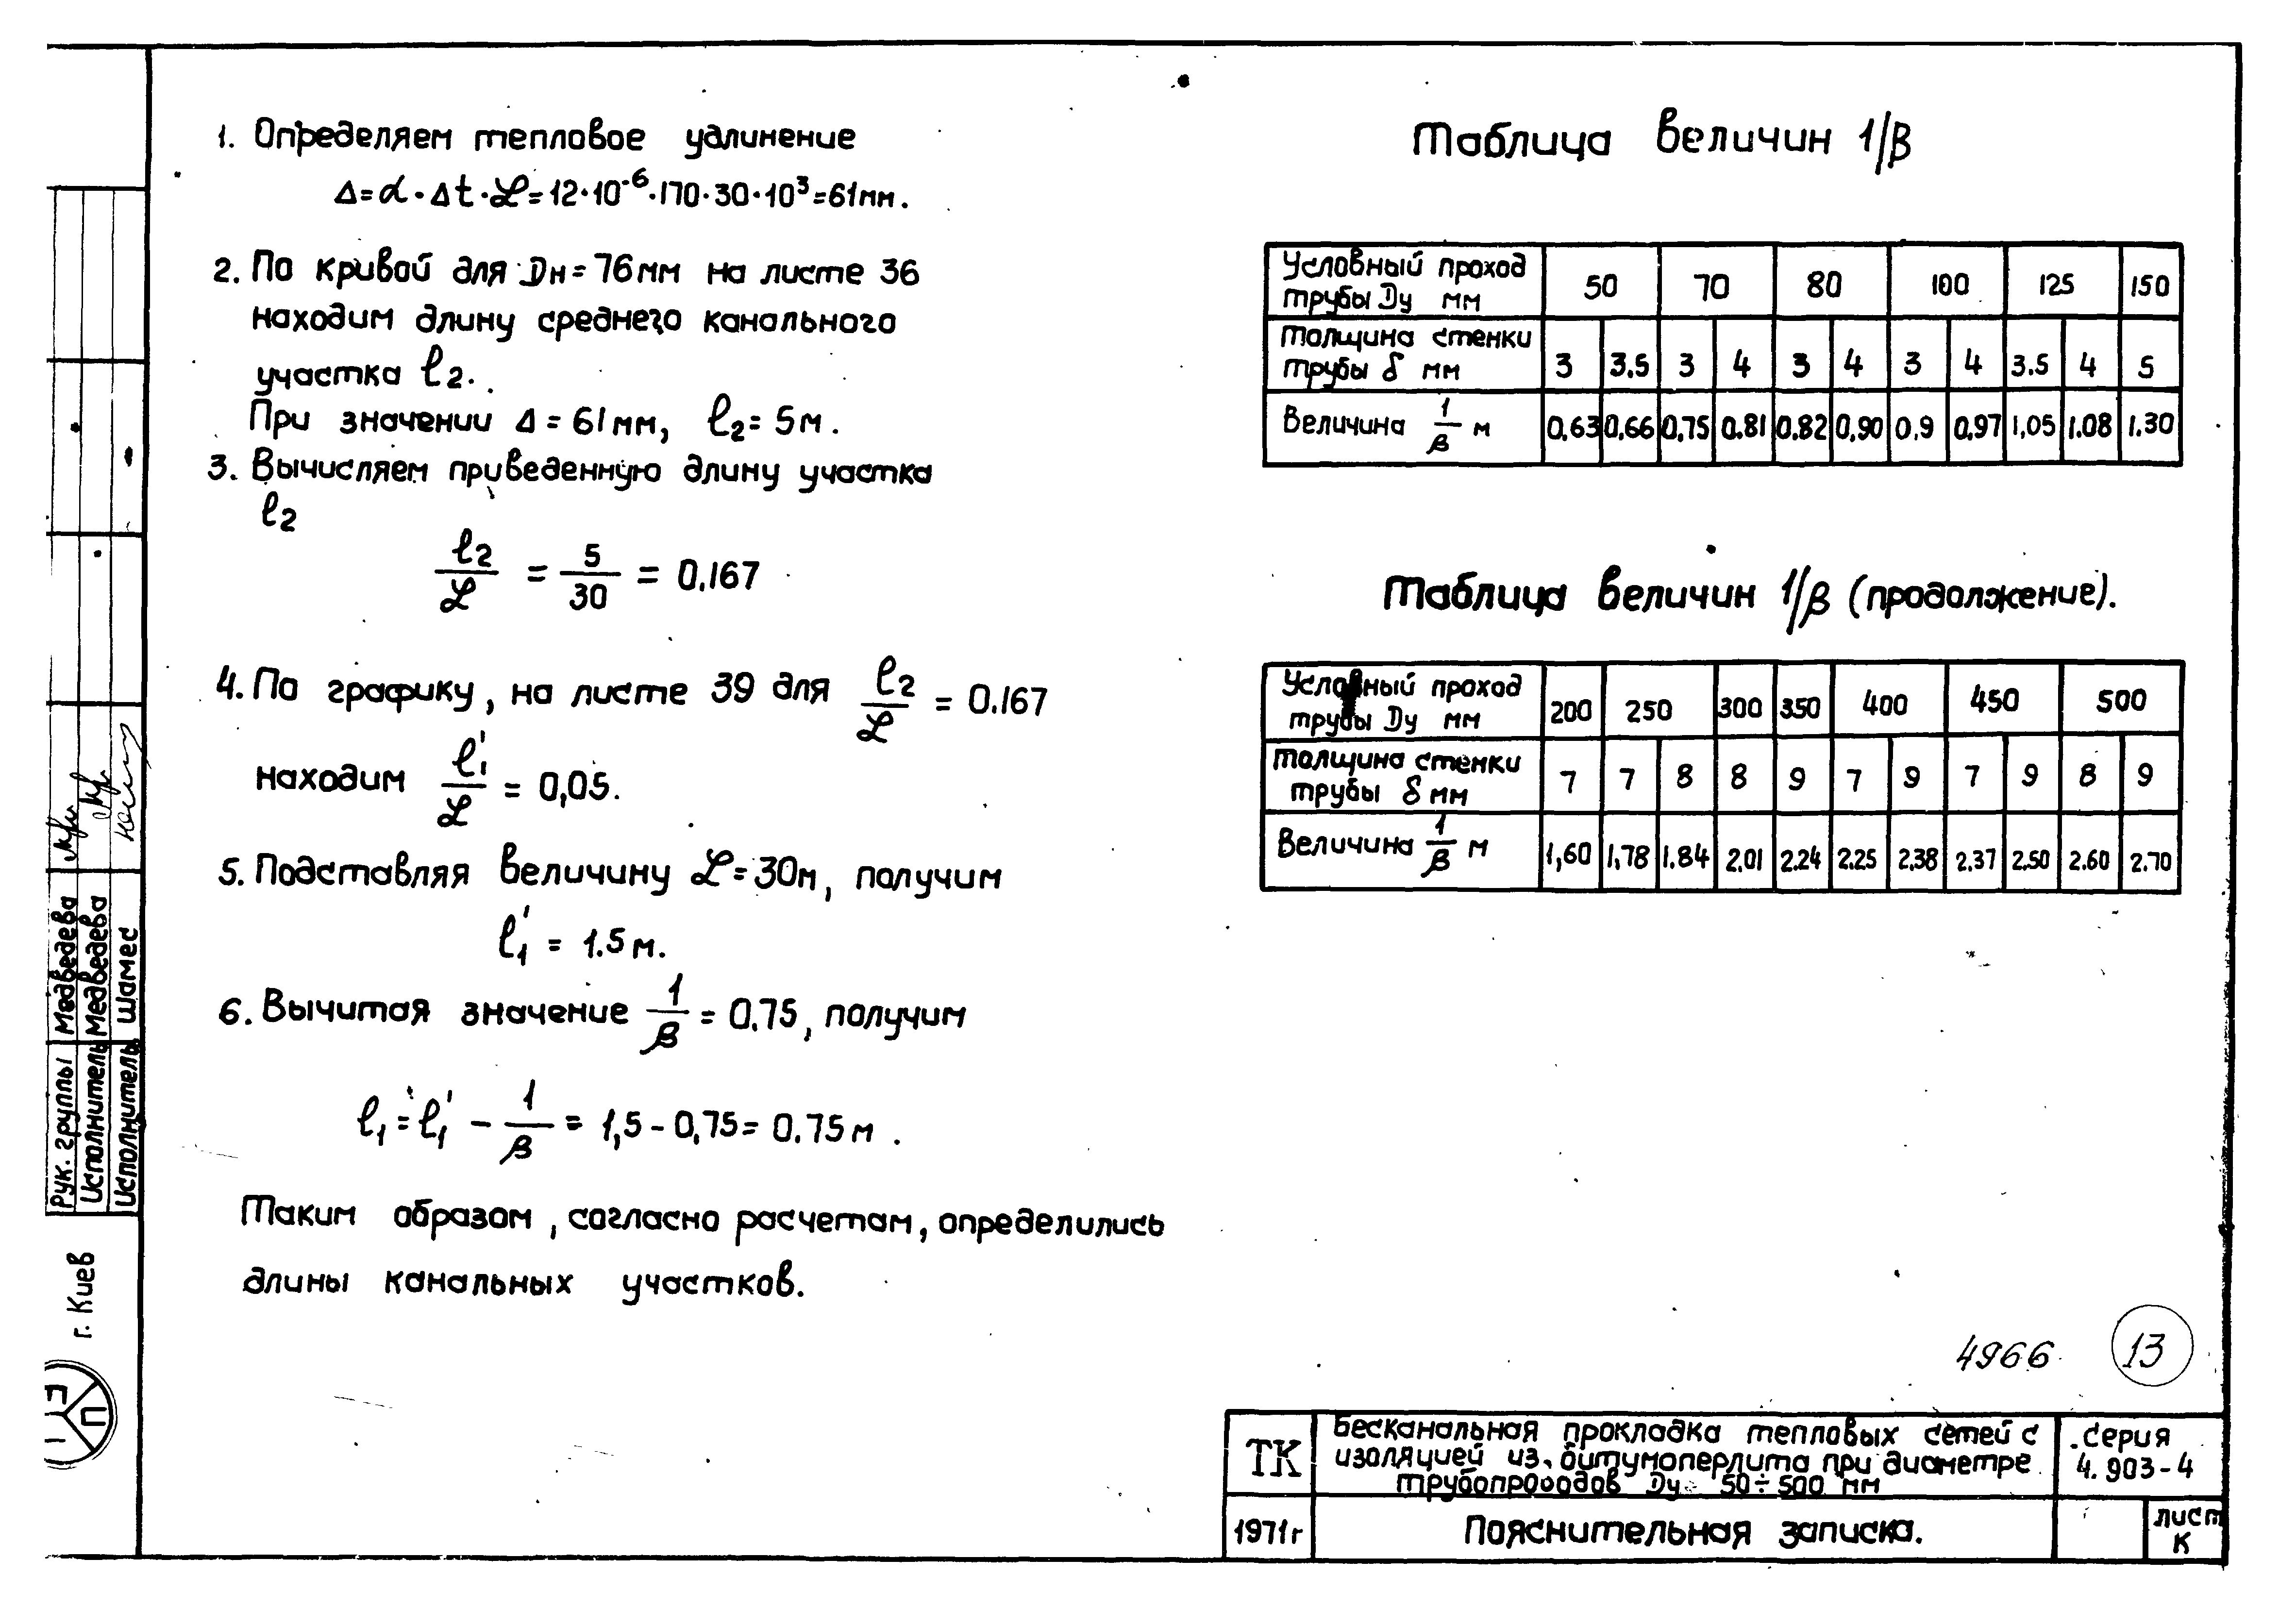 1. Определяем тепловое удлинение
Δ=α·Δt·ℒ=12·10⁻⁶·170·30·10³=61мм.
2. По кривой для Dн=76мм на листе 36
находим длину среднего канального
участка ℓ2.
При значении Δ=61мм, ℓ2=5м.
3. Вычисляем приведенную длину участка
ℓ2
ℓ2/ℒ = 5/30 = 0.167
4. По графику, на листе 39 для ℓ2/ℒ = 0.167
находим ℓ1'/ℒ = 0,05.
5. Подставляя величину ℒ=30м, получим
ℓ1' = 1.5м.
6. Вычитая значение 1/β = 0.75, получим
ℓ1=ℓ1' - 1/β = 1,5-0,75= 0.75м.
Таким образом, согласно расчетам, определились
длины канальных участков.
Таблица величин 1/β
Условный проход трубы Dу мм 50 70 80 100 125 150
Толщина стенки трубы δ мм 3 3.5 3 4 3 4 3 4 3.5 4 5
Величина 1/β м 0,63 0,66 0,75 0.81 0.82 0,90 0,9 0,97 1,05 1.08 1.30
Таблица величин 1/β (продолжение).
Условный проход трубы Dу мм 200 250 300 350 400 450 500
Толщина стенки трубы δ мм 7 7 8 8 9 7 9 7 9 8 9
Величина 1/β м 1,60 1,78 1.84 2.01 2.24 2.25 2.38 2.37 2.50 2.60 2.70
4966 13
ТК
Бесканальная прокладка тепловых сетей с
изоляцией из битумоперлита при диаметре
трубопроводов Dу 50÷500 мм
серия
4.903-4
1971г
Пояснительная записка.
лист
К
Рук. группы Медведева
Исполнитель Медведева
Исполнитель Шамес
г. Киев